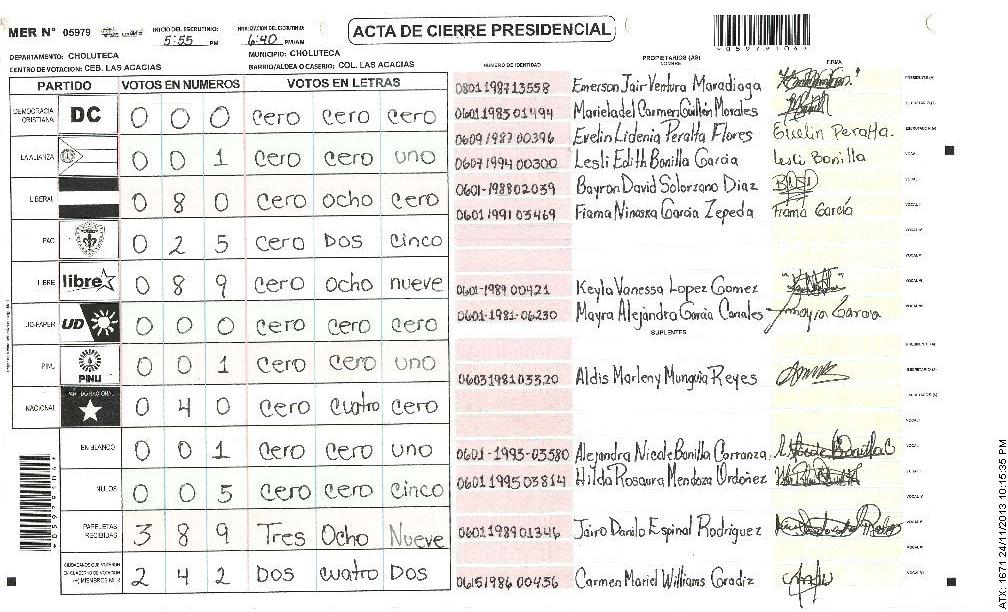 MER Nº 05979
INICIO DEL ESCRUTINIO: 5:55 PM
FINALIZACION DEL ESCRUTINIO: 6:40 PM/AM
ACTA DE CIERRE PRESIDENCIAL
*05979104*
DEPARTAMENTO: CHOLUTECA
MUNICIPIO: CHOLUTECA
CENTRO DE VOTACION: CEB. LAS ACACIAS
BARRIO/ALDEA O CASERIO: COL. LAS ACACIAS
PARTIDO VOTOS EN NUMEROS VOTOS EN LETRAS
DEMOCRACIA CRISTIANA DC 0 0 0 cero cero cero
LA ALIANZA 0 0 1 cero cero uno
LIBERAL 0 8 0 cero ocho cero
PAC 0 2 5 cero Dos cinco
LIBRE libre 0 8 9 cero ocho nueve
UD-FAPER UD 0 0 0 cero cero cero
PINU PINU 0 0 1 cero cero uno
NACIONAL 0 4 0 cero cuatro cero
EN BLANCO 0 0 1 cero cero uno
NULOS 0 0 5 cero cero cinco
PAPELETAS RECIBIDAS 3 8 9 Tres Ocho Nueve
CIUDADANOS QUE VOTARON EN CUADERNO DE VOTACION (+) MIEMBROS MER 2 4 2 Dos cuatro Dos
NUMERO DE IDENTIDAD PROPIETARIOS (AS) NOMBRE FIRMA
0801198713558 Emerson Jair Ventura Maradiaga PRESIDENTE(A)
0601198501494 Marieladel Carmen Guillén Morales SECRETARIO(A)
0609198700396 Evelin Lidenia Peralta Flores Evelin Peralta. ESCRUTADOR(A)
0607199400300 Lesli Edith Bonilla Garcia Lesli Bonilla
0601-198802039 Bayron David Solorzano Diaz
0601199103469 Fiama Ninoska Garcia Zepeda Fiama García
0601-1989 00421 Keyla Vanessa Lopez Gomez
0601-1981-06230 Mayra Alejandra Garcia Canales Mayra Garcia
SUPLENTES
0603198103320 Aldis Marleny Munguia Reyes
0601-1995-03580 Alejandra Nicole Bonilla Carranza
0601199503814 Hilda Rosaura Mendoza Ordoñez
0601198901346 Jairo Danilo Espinal Rodriguez
0615198600456 Carmen Mariel Williams Gradiz
*05979104*
ATX: 1671 24/11/2013 10:15:35 PM